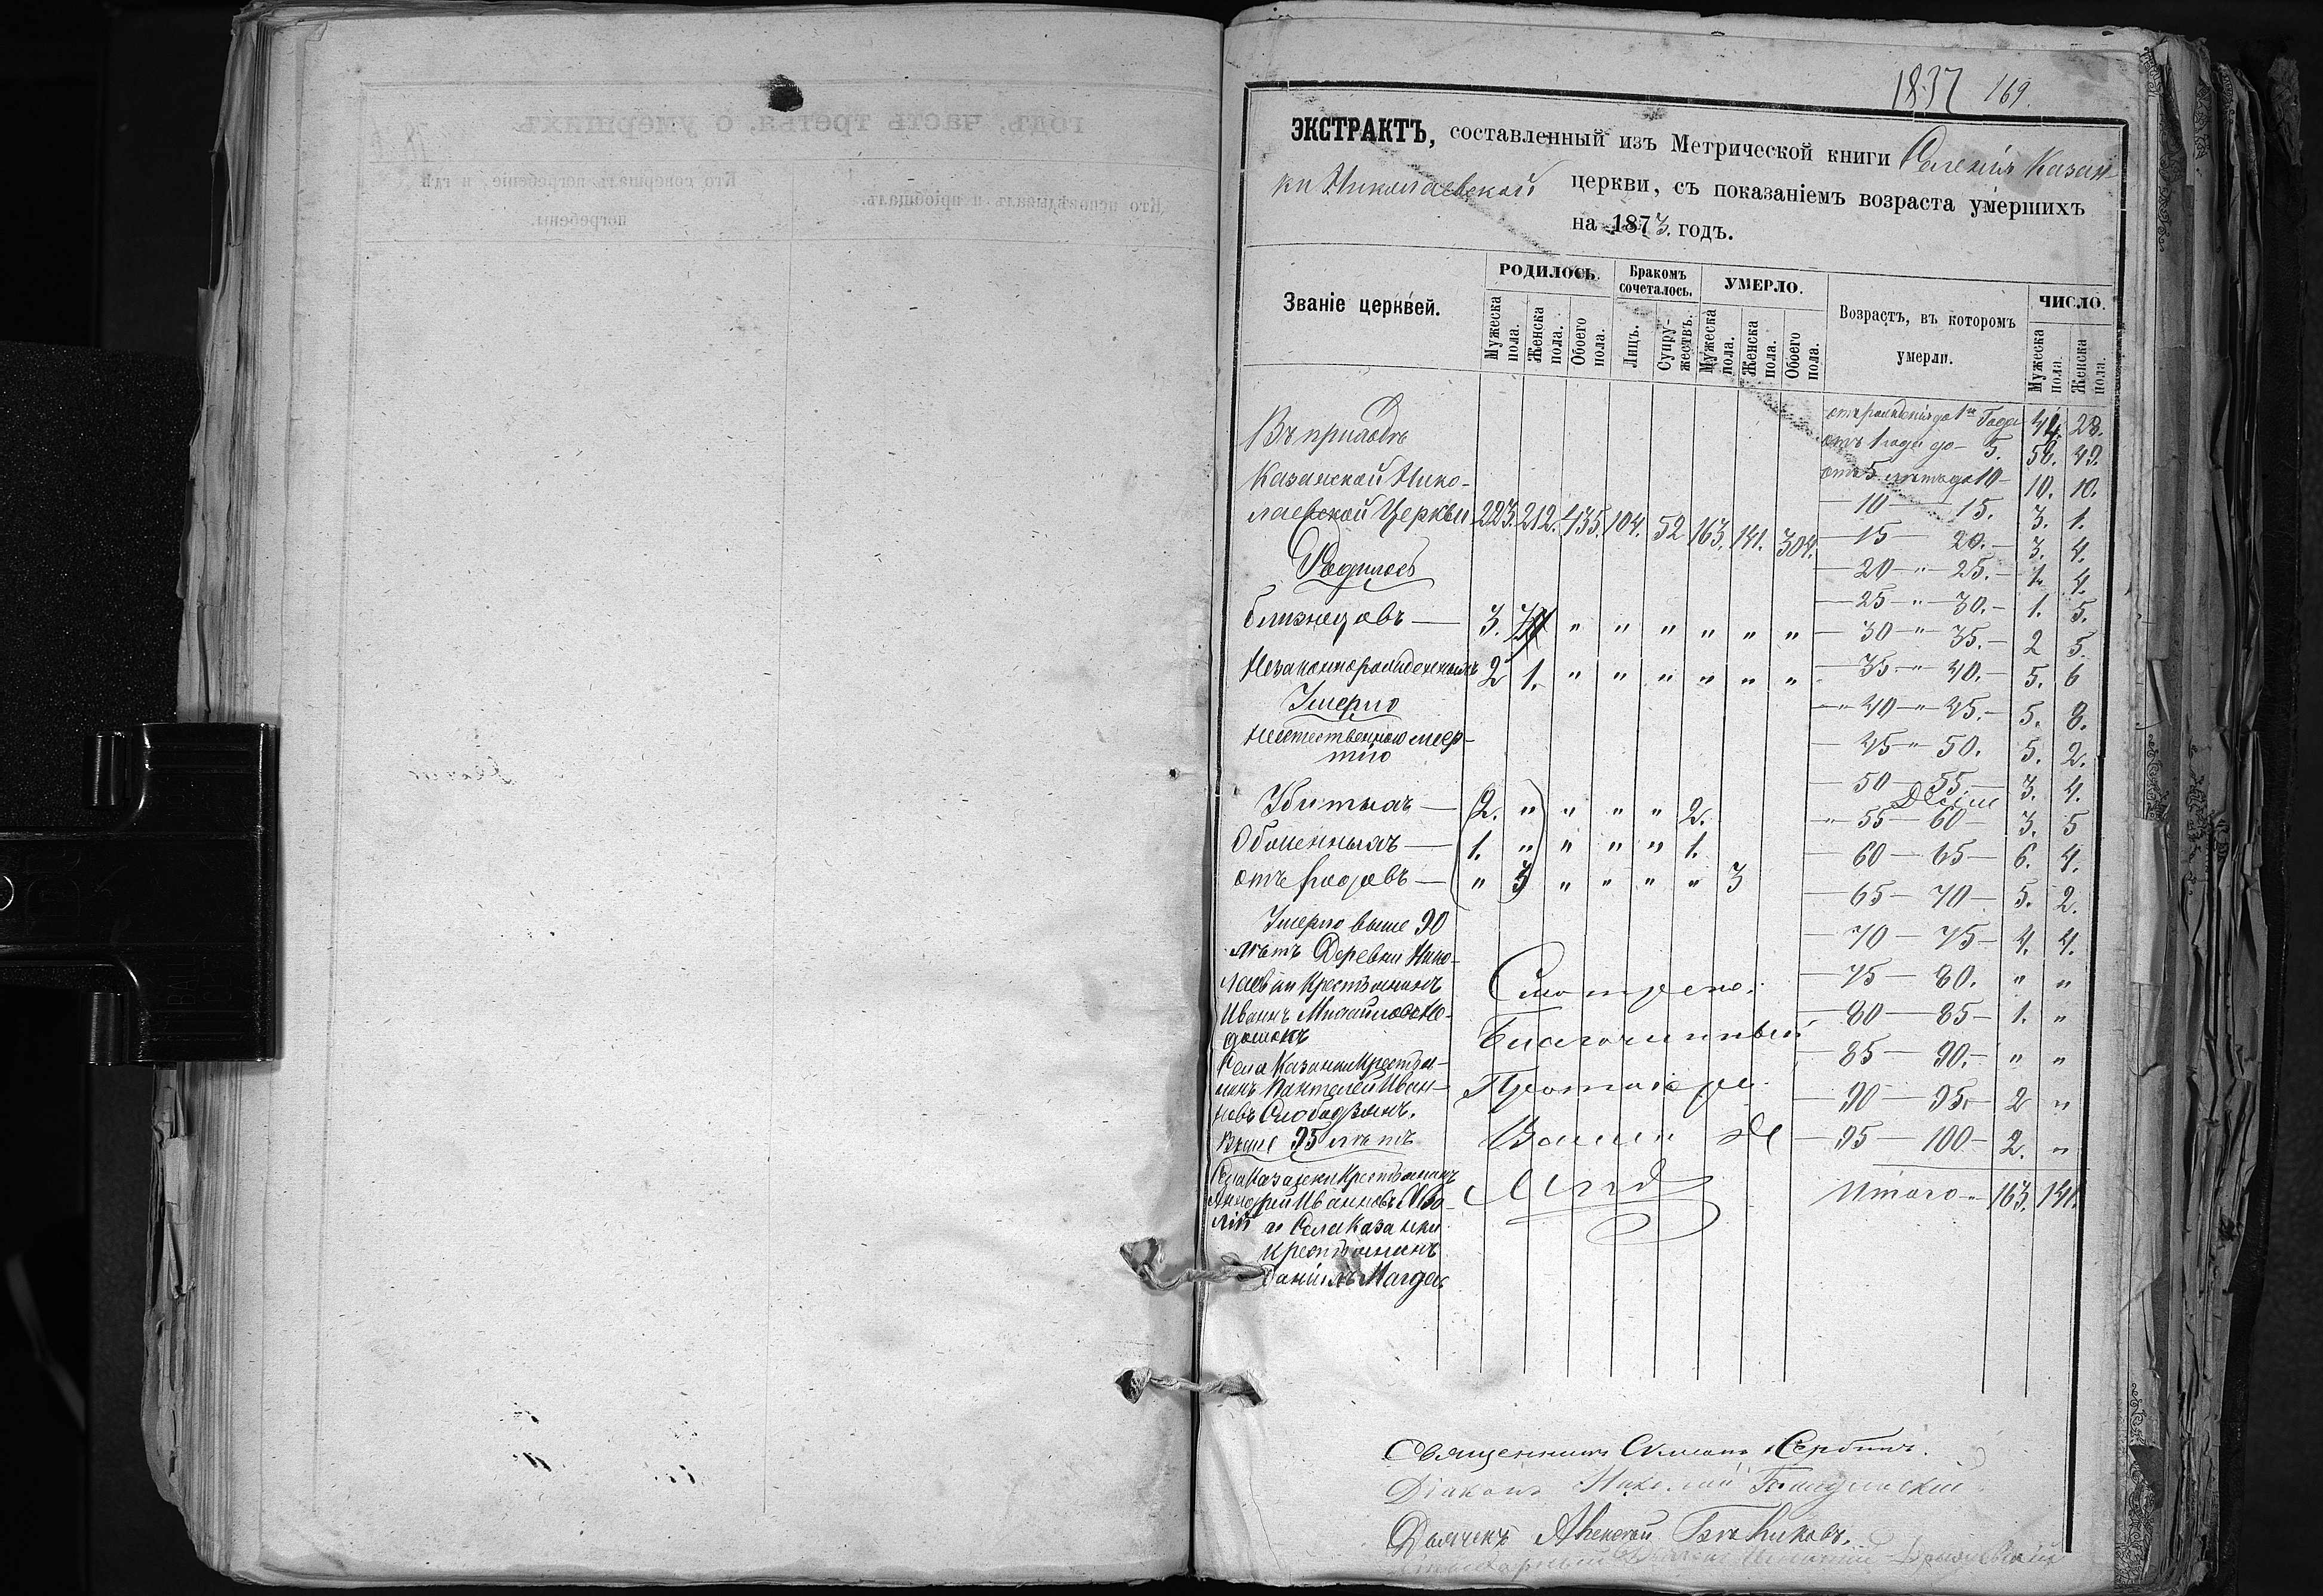 1837 169.
ЭКСТРАКТЪ, составленный изъ Метрической книги Селенія Казан
ки Николаевской церкви, съ показаніемъ возраста умершихъ
на 1873. годъ.
Званіе церквей.
РОДИЛОСЬ.
Бракомъ сочеталось.
УМЕРЛО.
Возрастъ, въ которомъ умерли.
ЧИСЛО.
Мужеска пола.
Женска пола.
Обоего пола.
Лицъ.
Супружествъ.
Мужеска пола.
Женска пола.
Обоего пола.
Мужеска пола.
Женска пола.
Въ приходѣ
Казанской Нико-
лаевской Церкви 223. 212. 435. 104. 52 163. 141. 304.
Родилось
близнецовъ — 3. " " " " " "
Незаконнорожденныхъ 2 1. " " " " " "
Умерло
неестественною смер-
тію
Убитыхъ — 2. " " " " 2.
— 1. " " " " 1.
отъ родовъ — " 3 " " " " 3
Умерло выше 90
лѣтъ Деревни Нико-
лаевки Крестьянинъ
Иванъ
Села Казанки Крестья-
нинъ Пантелей Иван-
новъ Слободянъ.
Выше 95 лѣтъ
Села Казанки Крестьянинъ
и Села Казанки
крестьянинъ
Даніилъ
отъ рожденія до 1го Года 44. 28.
отъ 1 года до — 5. 58. 49.
отъ 5 лѣтъ до 10 — 10. 10.
— 10 — 15. 3. 1.
— 15 — 20. — 3. 4.
— 20 — " — 25. — 1. 4.
— 25 — " — 30. — 1. 5.
— 30 — " — 35. — 2 5.
— 35 — " — 40. — 5. 6
— " 40 — " 45. — 5. 8.
— 45 — " 50. 5. 2.
— 50 — 55. — 3. 4.
" 55 — 60 — 3. 5
— 60 — 65 — 6. 4.
— 65 — 70 — 5. 2.
— 70 — 75 — 4. 4.
— 75 — 80. " "
— 80 — 85 — 1. "
— 85 — 90. — " "
— 90 — 95. — 2 "
— 95 — 100 — 2. "
Итого — 163. 141.
Благочинный
Священникъ Сербинъ.
Діаконъ Николай
Дьячекъ Алексѣй
годъ, часть третья, о умершихъ
Кто исповѣдывалъ и пріобщалъ.
Кто совершалъ погребеніе, и гдѣ
погребены.